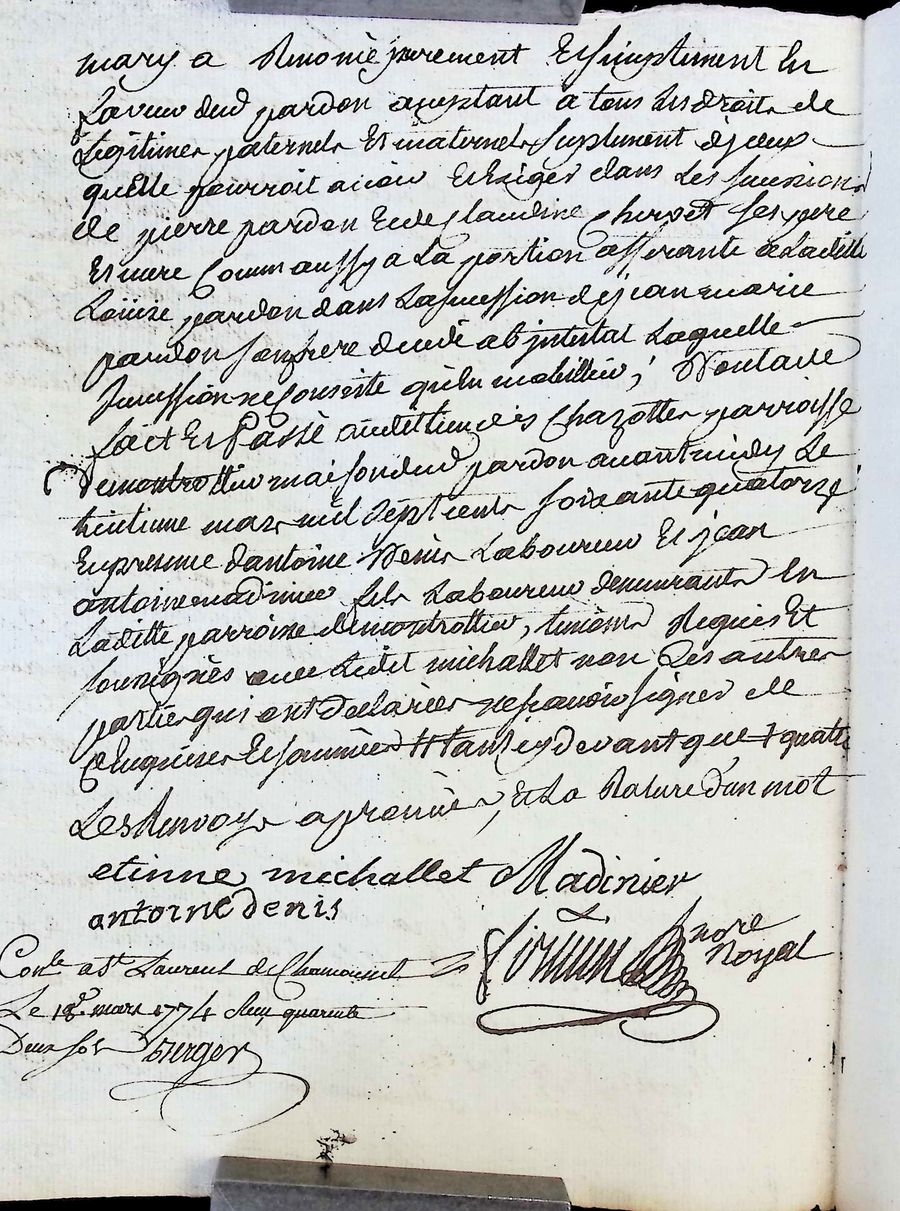 mary a Renoncé purement Et simplement En
faveur dud pardon acceptant a tous Les droits de
Legitimes paternels Et maternels suplement diceux
quelle pourroit avoir Et Exiger dans Les successions
de pierre pardon Et de Claudine Chervet ses pere
Et mere Comm aussy a La portion afferante a Laditte
Loüise pardon dans La succession de jean marie
pardon son frere decedé ab jntestat Laquelle
succession ne Consiste qu'en mobillier, Dont acte
fait Et Passé audit lieu des Chazottes parroisse
De montrottier maison dud pardon avant midy Le
huitieme mars mil sept cent soixante quatorze
En presence d'antoine Denis Laboureur Et jean
antoine madinier fils Laboureur demeurants En
Laditte parroisse de montrottier, temoins Requis Et
soussignés avec Ledit michallet non Les autres
parties qui ont declarées ne sçavoir signer de
ce Enquises Et sommées tant cy devant que quatre
Les Renvoys aprouvés, Et La Rature d'un mot
etienne michallet Madinier
antoine denis
nore Royal
Conlé a St Laurent de Chamousset
Le 18e mars 1774 Reçu quarente
Deux sols Berger